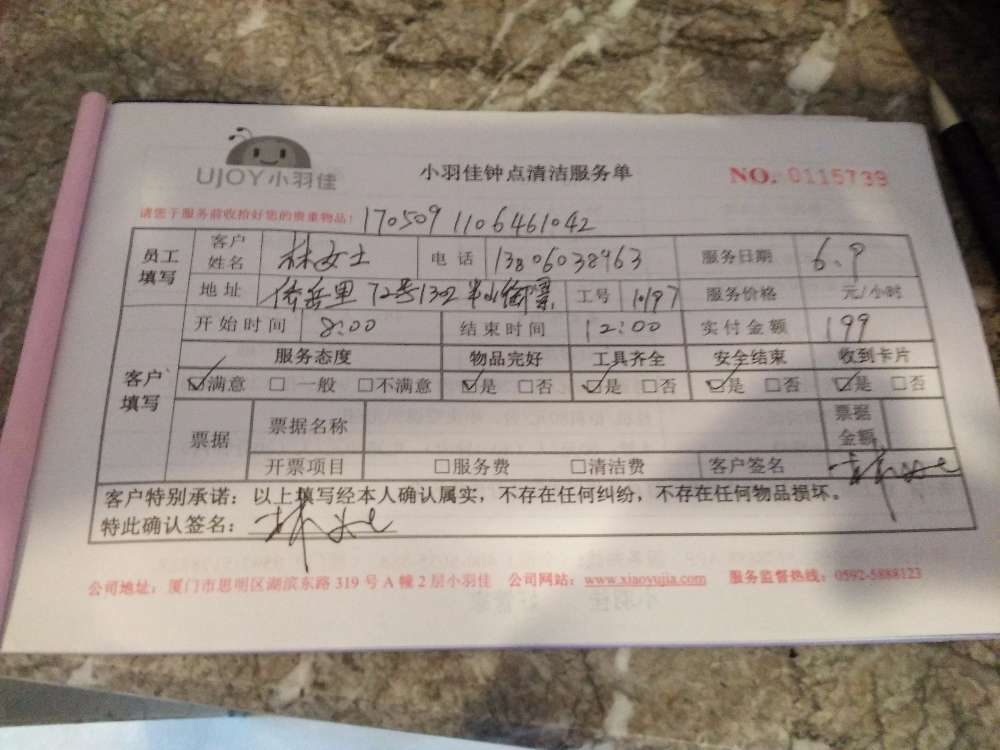 UJOY小羽佳
小羽佳钟点清洁服务单
NO. 0115739
请您于服务前收拾好您的贵重物品! 170509 1106461042
员工填写 客户姓名 林女士 电话 13806038963 服务日期 6.9
地址 里72号1302 工号 10197 服务价格 元/小时
客户填写 开始时间 8:00 结束时间 12:00 实付金额 199
服务态度 物品完好 工具齐全 安全结束 收到卡片
☑满意 □一般 □不满意 ☑是 □否 ☑是 □否 ☑是 □否 ☑是 □否
票据 票据名称 票据金额
开票项目 □服务费 □清洁费 客户签名
客户特别承诺:以上填写经本人确认属实,不存在任何纠纷,不存在任何物品损坏。
特此确认签名:
公司地址:厦门市思明区湖滨东路319号A幢2层小羽佳 公司网站:www.xiaoyujia.com 服务监督热线:0592-5888123